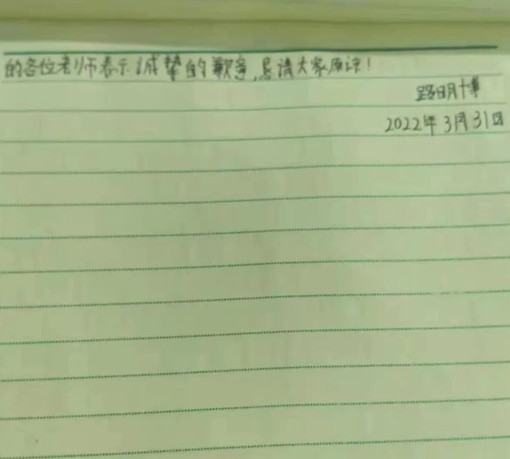 的各位老师表示诚挚的歉意,恳请大家原谅!
路明
2022年3月31日